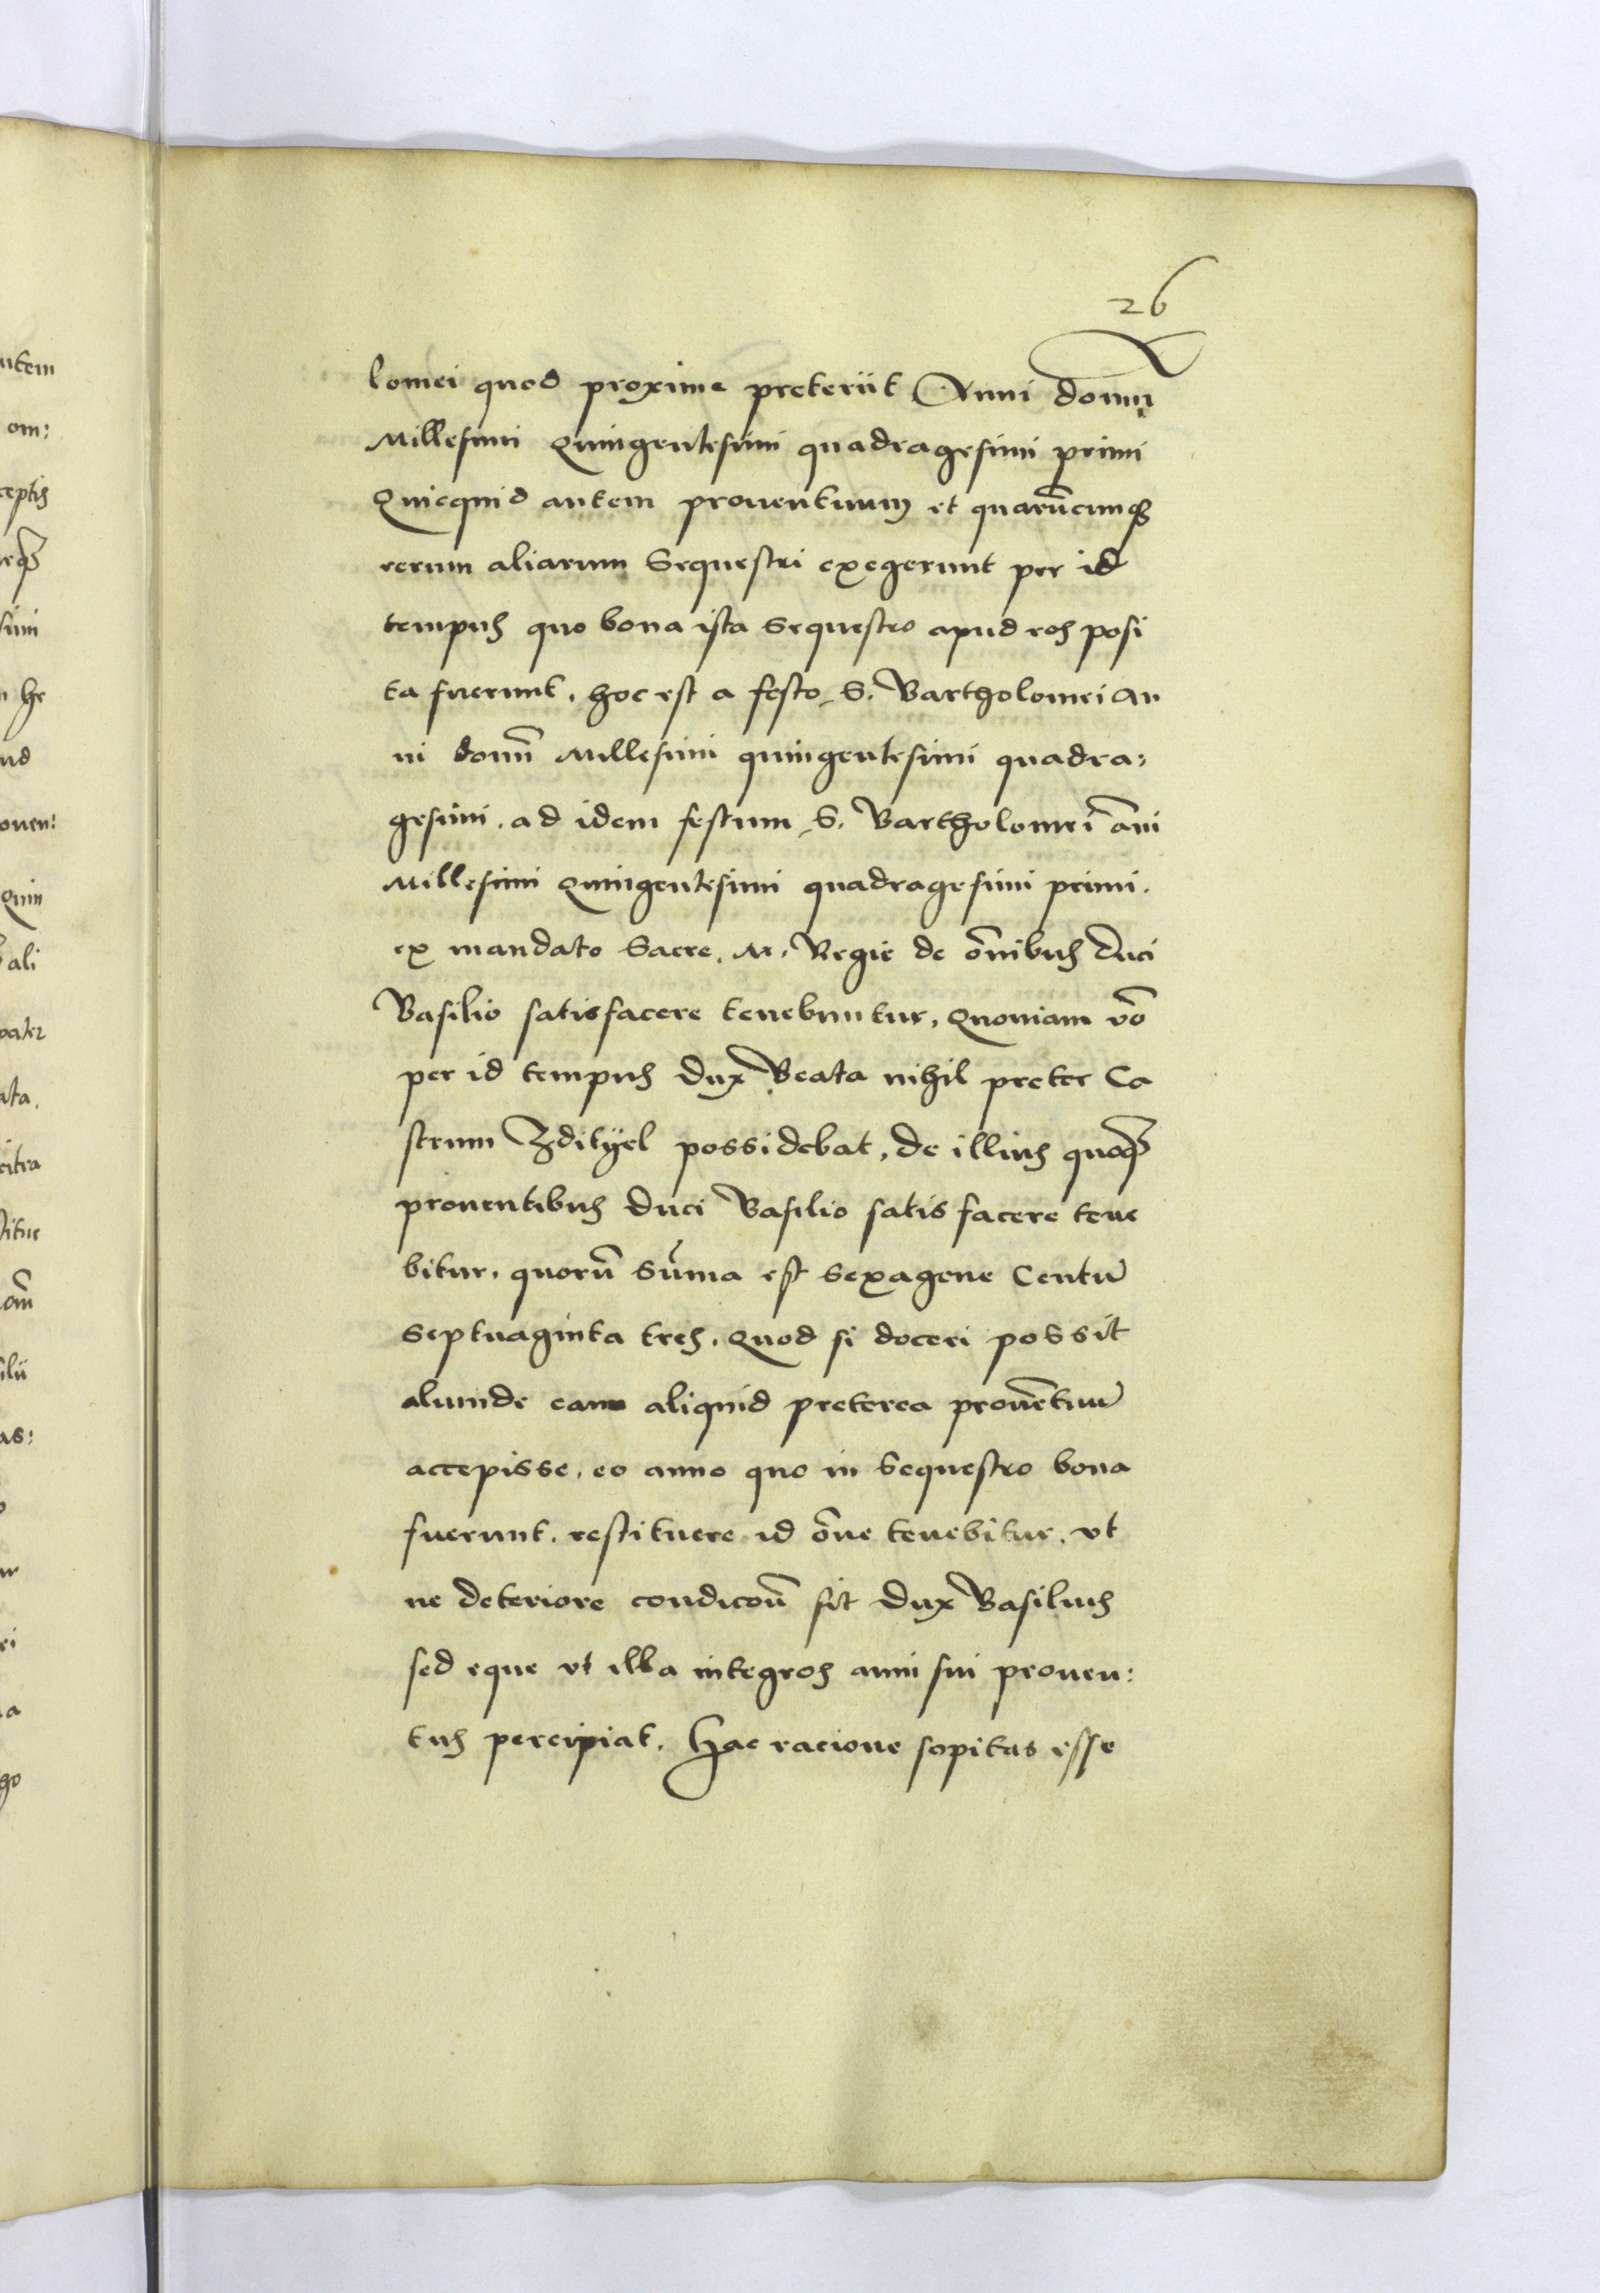 26
lomei quod proxime preteriit Anni domī
Millesimi Quingentesimi quadragesimi primi
Quicquid autem prouentuum et quarūcunq;
rerum aliarum Sequestri exegerunt per id
tempus quo bona ista Sequestro apud eos posi
ta fuerunt, hoc est a festo S. Bartholomei An
ni domī Millesimi quingentesimi quadra:
gesimi, ad idem festum S. Bartholomei āni
Millesimi Quingentesimi quadragesimi primi.
ex mandato Sacre. M. Regie de ōnibus Duci
Basilio satisfacere tenebuntur, Quoniam vō
per id tempus Dux Beata nihil preter Ca
strum Zdityel possidebat, de illius quoq;
prouentibus Duci Basilio satis facere tene
bitur, quorū Sūma est Sexagene Centū
Septuaginta tres. Quod si doceri possit
aliunde eam aliquid preterea prouētuū
accepisse, eo anno quo in Sequestro bona
fuerunt, restituere id ōne tenebitur, vt
ne deteriore condicōn̄ sit Dux Basilius
sed eque vt illa integros anni sui prouen:
tus percipiat. Hac racione sopitas esse